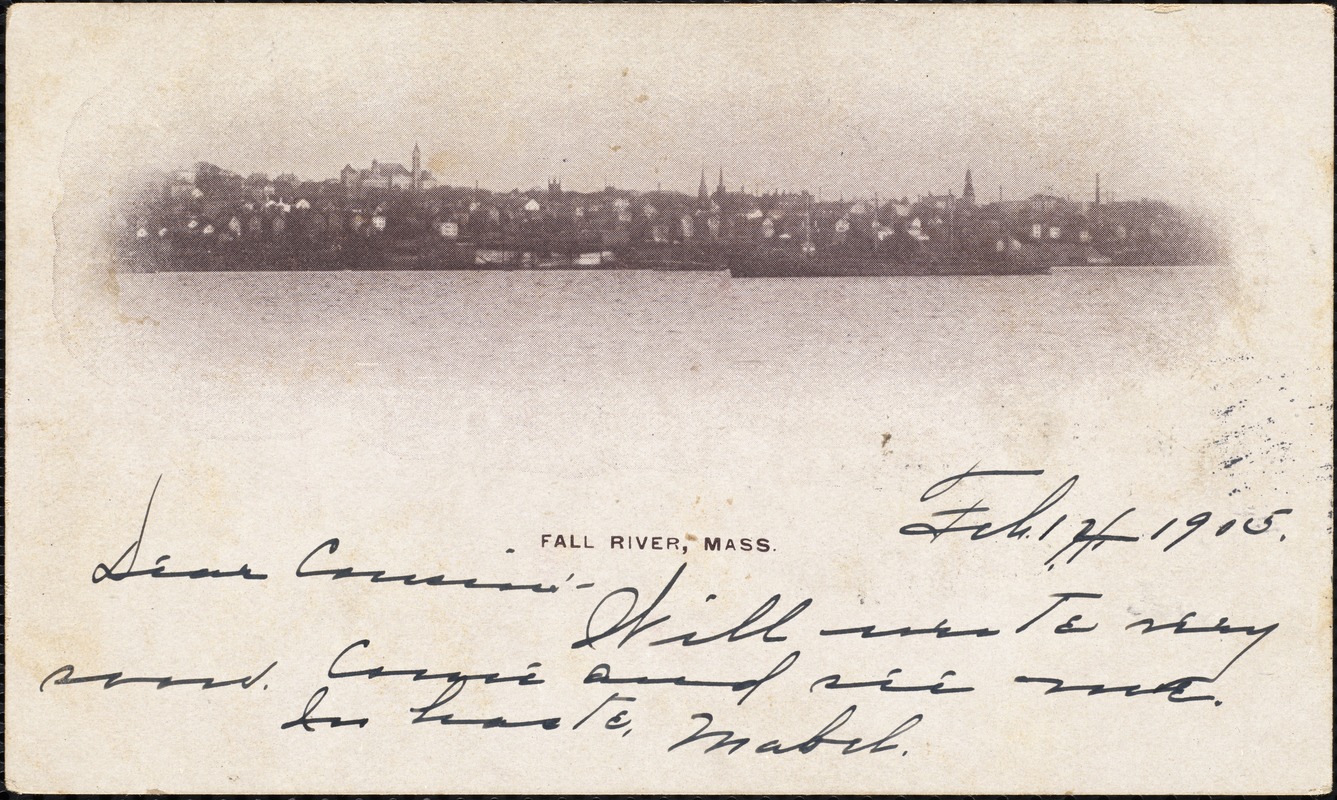 FALL RIVER, MASS.
Feb. 14, 1905.
Dear Cousin:-
Will write very
soon. Come and see me.
In haste, Mabel.